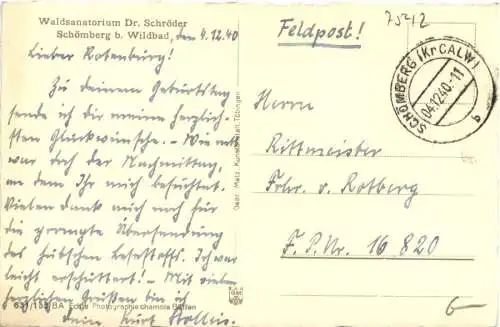 Waldsanatorium Dr. Schröder
Schömberg b. Wildbad, den 4.12.40
Lieber Rotenburg!
Zu deinem Geburtstag
sende ich dir meine herzlich-
sten Glückwünsche. – Wie nett
war doch der Nachmittag,
an dem Ihr mich besuchtet.
Vielen Dank auch noch für
die prompte Übersendung
des hübschen Lesestoffs. Ich war
leicht erschüttert! – Mit vielen
herzlichen Grüßen bin ich
dein Kurt
631/153/BA Echte Photographie
Gebr. Metz, Kunstanstalt, Tübingen
Feldpost!
SCHÖMBERG (Kr CALW)
04.12.40.-11
b
Herrn
Rittmeister
Frhr. v. Rotberg
F.P.Nr. 16 820
6-